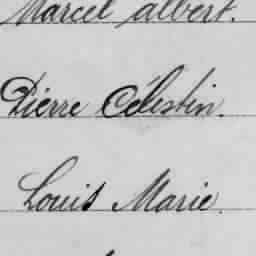 Marcel albert.
Pierre Célestin.
Louis Marie.